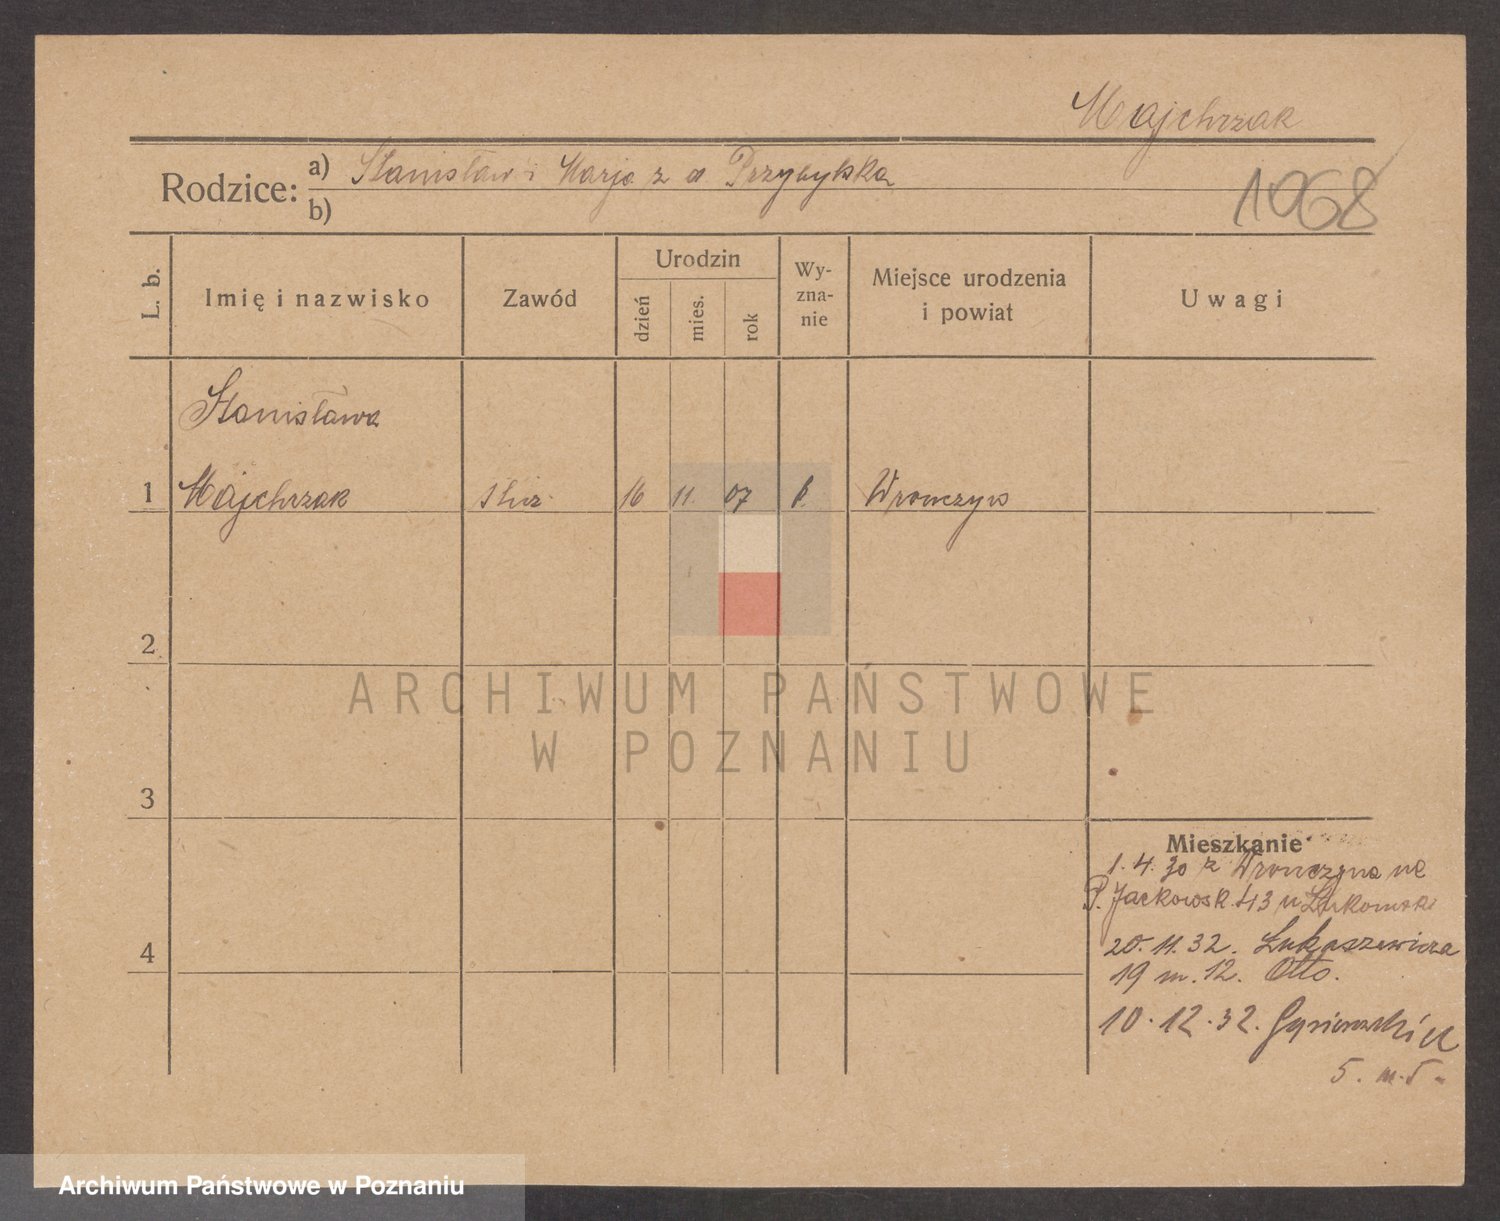 Majchrzak
Rodzice: a) Stanisław i Marja z d. Przybylska
b)
1068
L. b.
Imię i nazwisko
Zawód
Urodzin
dzień
mies.
rok
Wy-
zna-
nie
Miejsce urodzenia
i powiat
Uwagi
Stanisława
1 Majchrzak służ. 16 11. 07 Wronczyn
2
ARCHIWUM PAŃSTWOWE
W POZNANIU
3
Mieszkanie
1.4.30 z Wronczyna na
P. Jackowsk. 43 u Łukomski
4
20.11.32. Łukaszewicza
19 m. 12. Otto.
10.12.32.
5. m. 5.
Archiwum Państwowe w Poznaniu